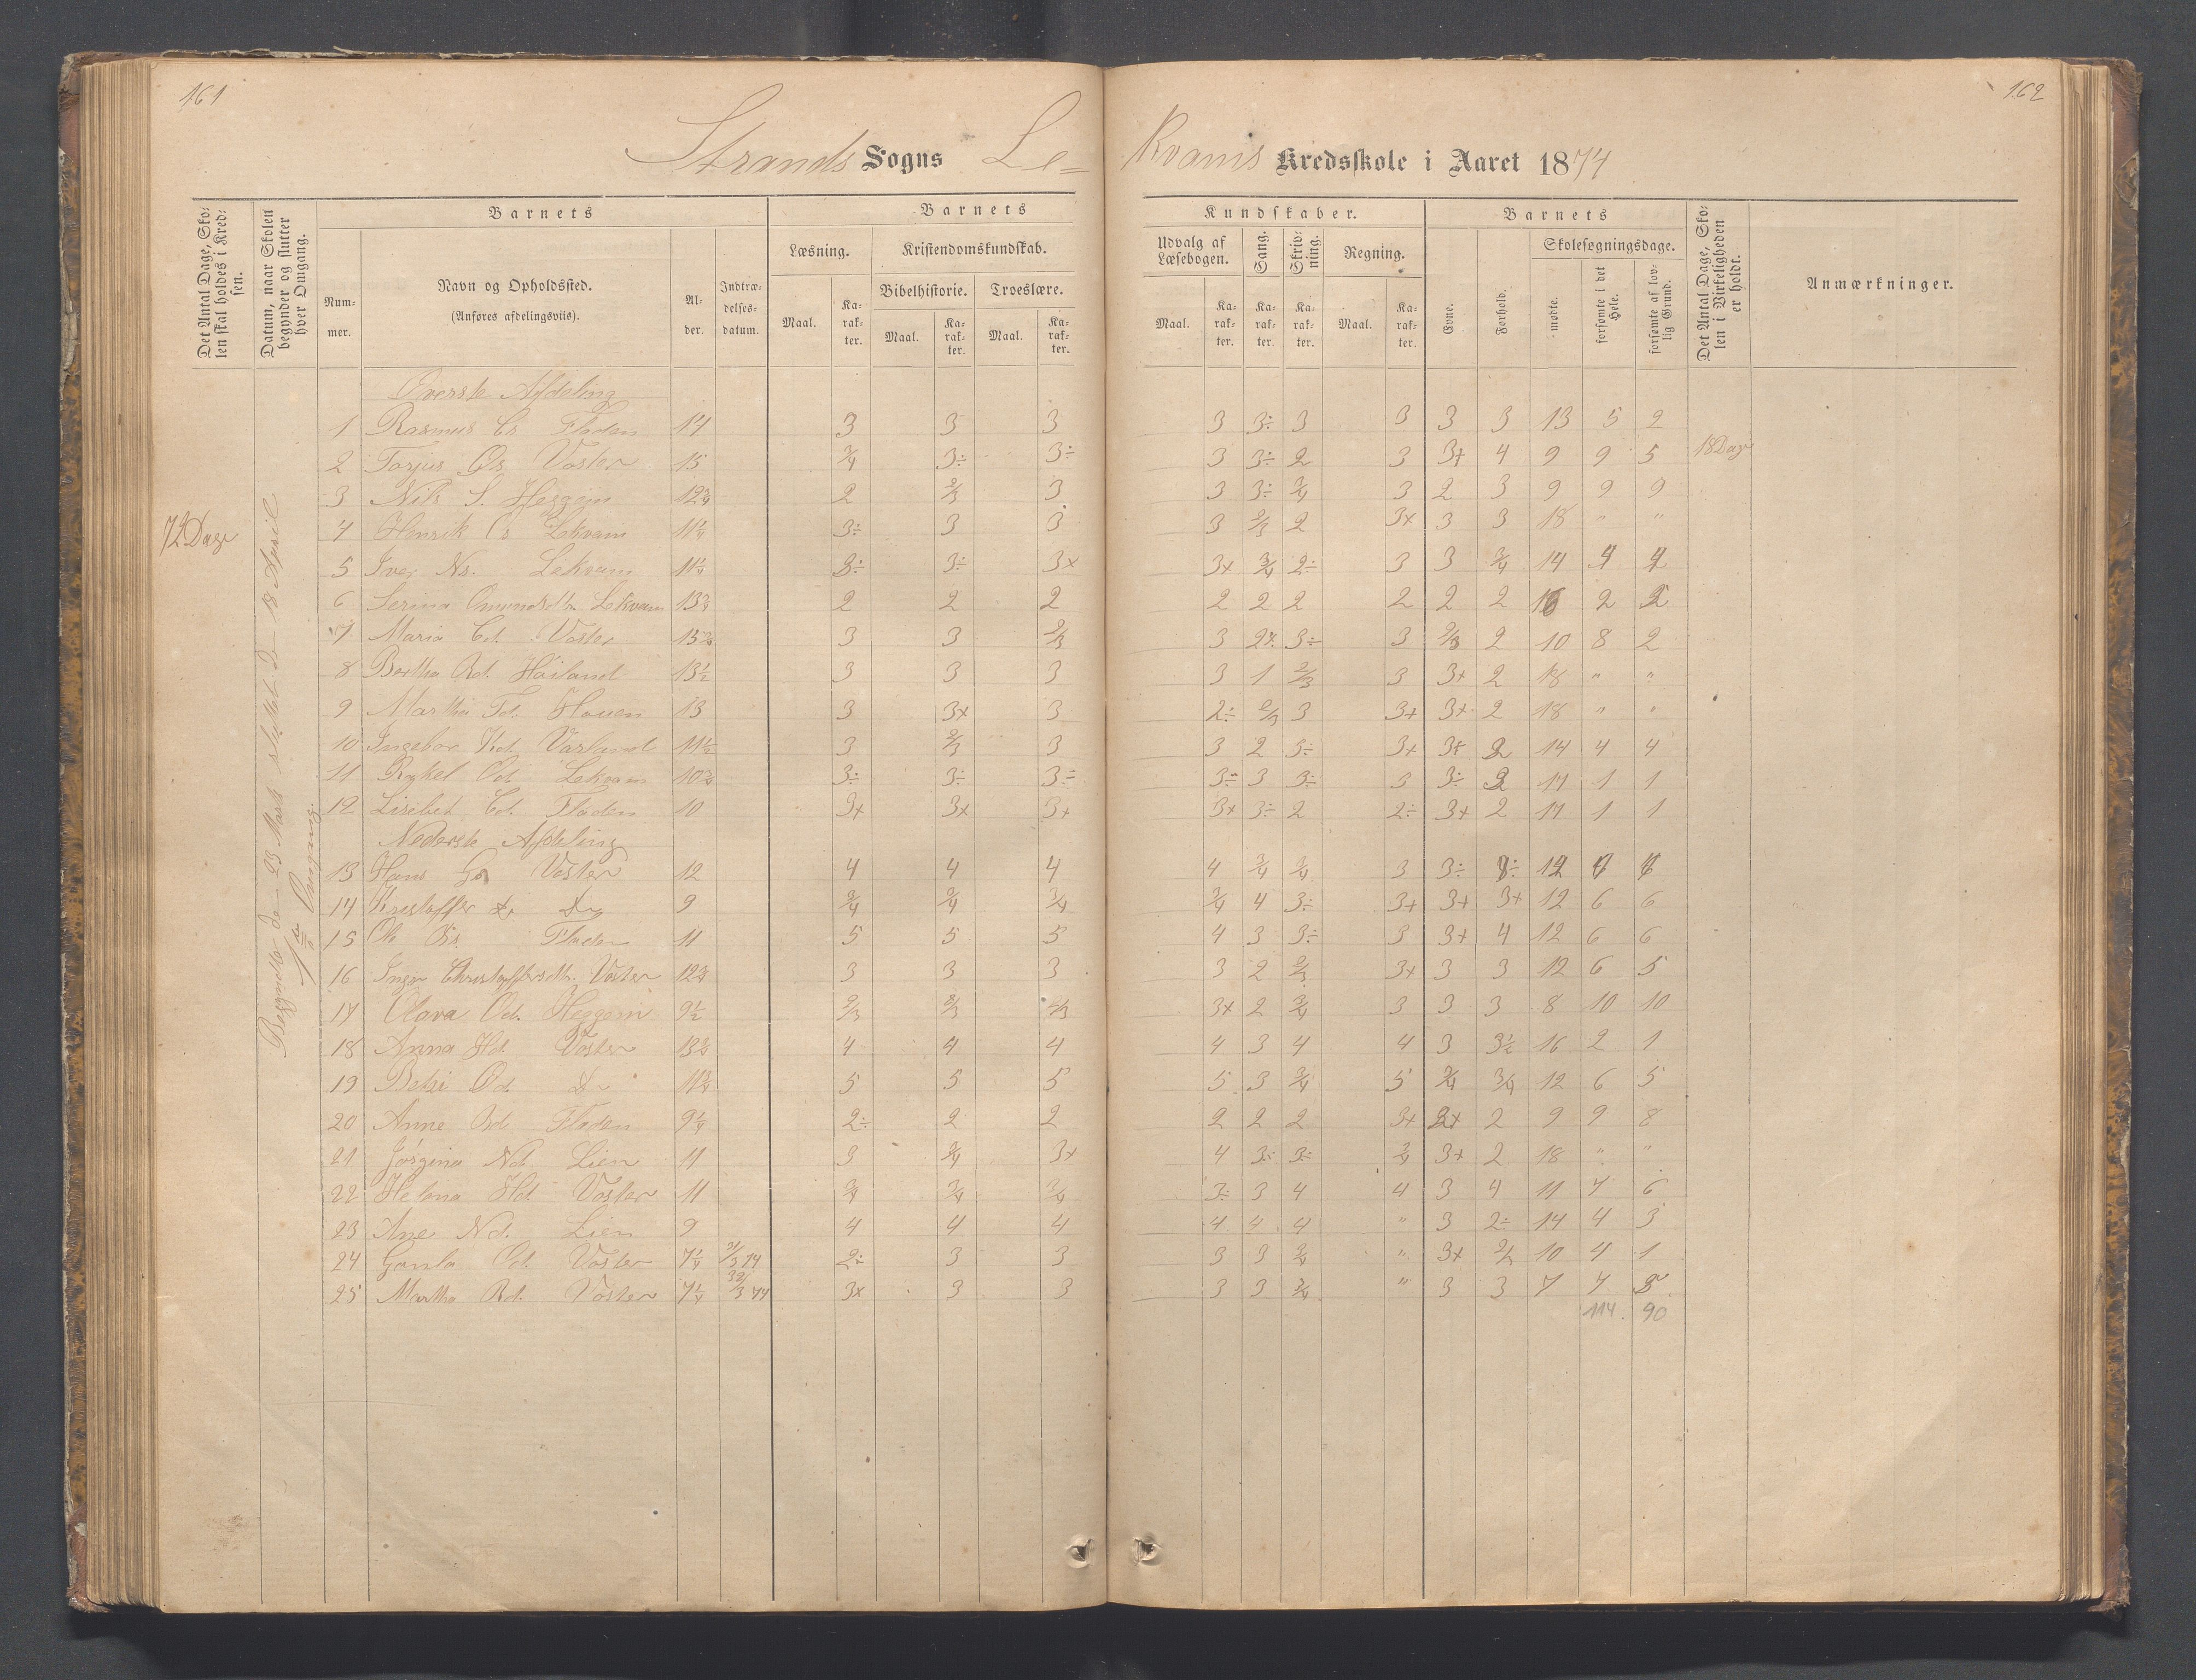 161
162
Strands Sogns Le=
Kvams Kredsskole i Aaret 1874
Det Antal Dage, Sko-
len skal holdes i Kred-
sen.
Datum, naar Skolen
begynder og slutter
hver Omgang.
Barnets
Num-
mer.
Navn og Opholdssted.
(Anføres afdelingsviis).
Al-
der.
Indtræ-
delses-
datum.
Barnets
Læsning.
Maal.
Ka-
rak-
ter.
Kristendomskundskab.
Bibelhistorie.
Maal.
Ka-
rak-
ter.
Troeslære.
Maal.
Ka-
rak-
ter.
Kundskaber.
Udvalg af
Læsebogen.
Maal.
Ka-
rak-
ter.
Sang.
Ka-
rak-
ter.
Skriv-
ning.
Ka-
rak-
ter.
Regning.
Maal.
Ka-
rak-
ter.
Barnets
Evne.
Forhold.
Skolesøgningsdage.
mødte.
forsømte i det
Hele.
forsømte af lov-
lig Grund.
Det Antal Dage, Sko-
len i Virkeligheden
er holdt.
Anmærkninger.
72 Dage
Begyndte den 23 Marts sluttet den 18 April
1ste Omgang.
18 Dage
Øverste Afdeling
1 Rasmus Fladen 14 3 3 3 3 3÷ 3 3 3 3 13 5 2
2 Torjus Os Voster 15 3/4 3÷ 3÷ 3 3÷ 2 3 3+ 4 9 9 5
3 Nils S. Heggem 12 3/4 2 2/3 3 3 3÷ 3/4 3 2 3 9 9 9
4 Henrik Lekvam 11 1/4 3÷ 3 3 3 2/3 2 3x 3 3 18 " "
5 Iver Ns. Lekvam 11 1/4 3÷ 3÷ 3x 3x 3/4 2÷ 3 3 3/4 14 4 4
6 Serina Omundsdtr. Lekvam 13 3/4 2 2 2 2 2 2 2 2 2 16 2 2
7 Maria Cd. Voster 15 3 3 2/3 3 2x 3÷ 3 2/3 2 10 8 2
8 Bertha Rd. Høiland 13 1/2 3 3 3 3 1 2/3 3 3+ 2 18 " "
9 Marthe Td. Hauen 13 3 3x 3 2÷ 2/3 3 3+ 3+ 2 18 " "
10 Ingebor Kd. Varland 11 1/2 3 2/3 3 3 2 3÷ 3+ 3+ 2 14 4 4
11 Rakel Od. Lekvam 10 3÷ 3÷ 3÷ 3÷ 3 3÷ 3 3÷ 2 17 1 1
12 Lisebet Cd. Fladen 10 3+ 3x 3+ 3+ 3÷ 2 2÷ 3+ 2 17 1 1
Nederste Afdeling
13 Hans Voster 12 4 4 4 4 3/4 3/4 3 3÷ 12
14 Kristoffer Do 9 3/4 3/4 3/4 3/4 4 3÷ 3+ 3+ 3+ 12 6 6
15 Ole Fladen 11 5 5 5 4 3 3÷ 3 3+ 4 12 6 6
16 Inger Christoffersdtr. Voster 12 3/4 3 3 3 3 2 2/3 3+ 3 3 12 6 5
17 Olava Od. Heggem 9 1/2 2/3 2/3 2/3 3+ 2 3/4 3 3 3 8 10 10
18 Anna Hd. Voster 13 3/4 4 4 4 4 3 4 4 3 3 1/2 16 2 1
19 Betsi Od. Do 11 3/4 5 5 5 5 3 3/4 5 3/4 3/4 12 6 5
20 Anne Rd. Fladen 9 1/4 2÷ 2 2 2 2 2 3+ 2+ 2 9 9 8
21 Jørgina Nd. Lien 11 3 3/4 3+ 4 3÷ 3÷ 3/4 3+ 2 18 " "
22 Helena Hd. Voster 11 3/4 3/4 3/4 3÷ 3 4 4 3 4 11 7 6
23 Ane Nd. Lien 9 4 4 4 4 4 4 " 3 2÷ 14 4 3
24 Gunla Od. Voster 7 1/4 31/3 74 2÷ 3 3 3 3 3/4 " 3+ 10 4 1
25 Martha Rd. Voster 7 1/4 3x 3 3 3 3 3/4 " 3 3 7 7
114 90